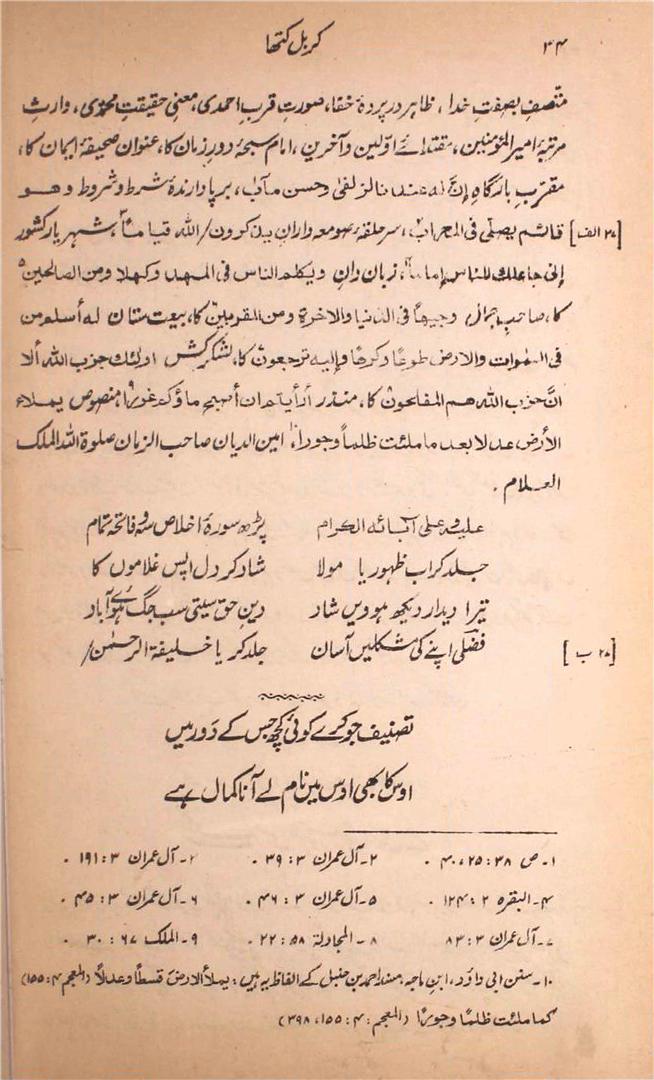 ۳۴ کربل کتھا
متصفِ بصفتِ خدا، ظاہر در پردۂ خفا، صورتِ قربِ احمدی، معنیِ حقیقتِ محمدی، وارثِ
مرتبۂ امیر المؤمنین، مقتدائے اوّلین و آخرین، امام سبحۂ دورِ زمان کا، عنوان صحیفۂ ایمان کا،
مقرّبِ بارگاہِ إنّ له عندنا لزلفىٰ وحسن مآب۱، برپا دارندۂ شرط و شروط و هو
[۲۷ الف] قائم یصلّی فی المحراب۲، سر حلقۂ صومعہ دارانِ یذکرون/ الله قیاماً۳، شہر یارِ کشور
إنی جاعلك للناس إماما۴، زبان دانِ ویكلم الناس فی المهد وکهلا ومن الصالحین۵
کا، صاحبِ جمالِ وجیهاً فی الدنیا والآخرة ومن المقربین۶ کا، بیعت ستان له أسلم من
فی السّموات والارض طوعًا وکرهًا وإلیه ترجعون۷ کا، لشکر کش اولئك حزب الله ألا
انّ حزب الله هم المفلحون۸ کا، منذر أرأیتم ان أصبح ماؤكم غورًا۹، منصوص یملاء
الأرض عدلا بعد ما ملئت ظلماً وجورا۱۰، امین الدیان صاحب الزمان صلوة الله الملك
العلام۔
علیہ و علی آبائه الکرام پڑھ سورۂ اخلاص سہ و فاتحہ تمام
جلد کر اب ظہور یا مولا شاد کر دل اپس غلاموں کا
تیرا دیدار دیکھ ہوویں شاد دینِ حق سیتی سب جگ ہوئے آباد
فضلی اپنے کی مشکلیں آسان جلد کر یا خلیفۃ الرحمٰن/ [۲۷ ب]
تصنیف جو کرے کوئی کچھ جس کے دَور میں
اوس کا بھی اوس میں نام لے آنا کمال ہے
۱۔ ص ۳۸ : ۲۵، ۴۰۔ ۲۔ آل عمران ۳ : ۳۹۔ ۳۔ آل عمران ۳ : ۱۹۱۔
۴۔ البقرہ ۲ : ۱۲۴۔ ۵۔ آل عمران ۳ : ۴۶۔ ۶۔ آل عمران ۳ : ۴۵۔
۷۔ آل عمران ۳ : ۸۳ ۸۔ المجادلة ۵۸ : ۲۲۔ ۹۔ الملک ۶۷ : ۳۰۔
۱۰۔ سنن ابی داؤد، ابن ماجہ، مسند احمد بن حنبل کے الفاظ یہ ہیں : یملأ الارض قسطًا وعدلًا (المعجم ۴ : ۱۵۵)
کما ملئت ظلمًا وجورًا (المعجم : ۴ : ۱۵۵، ۳۹۸)